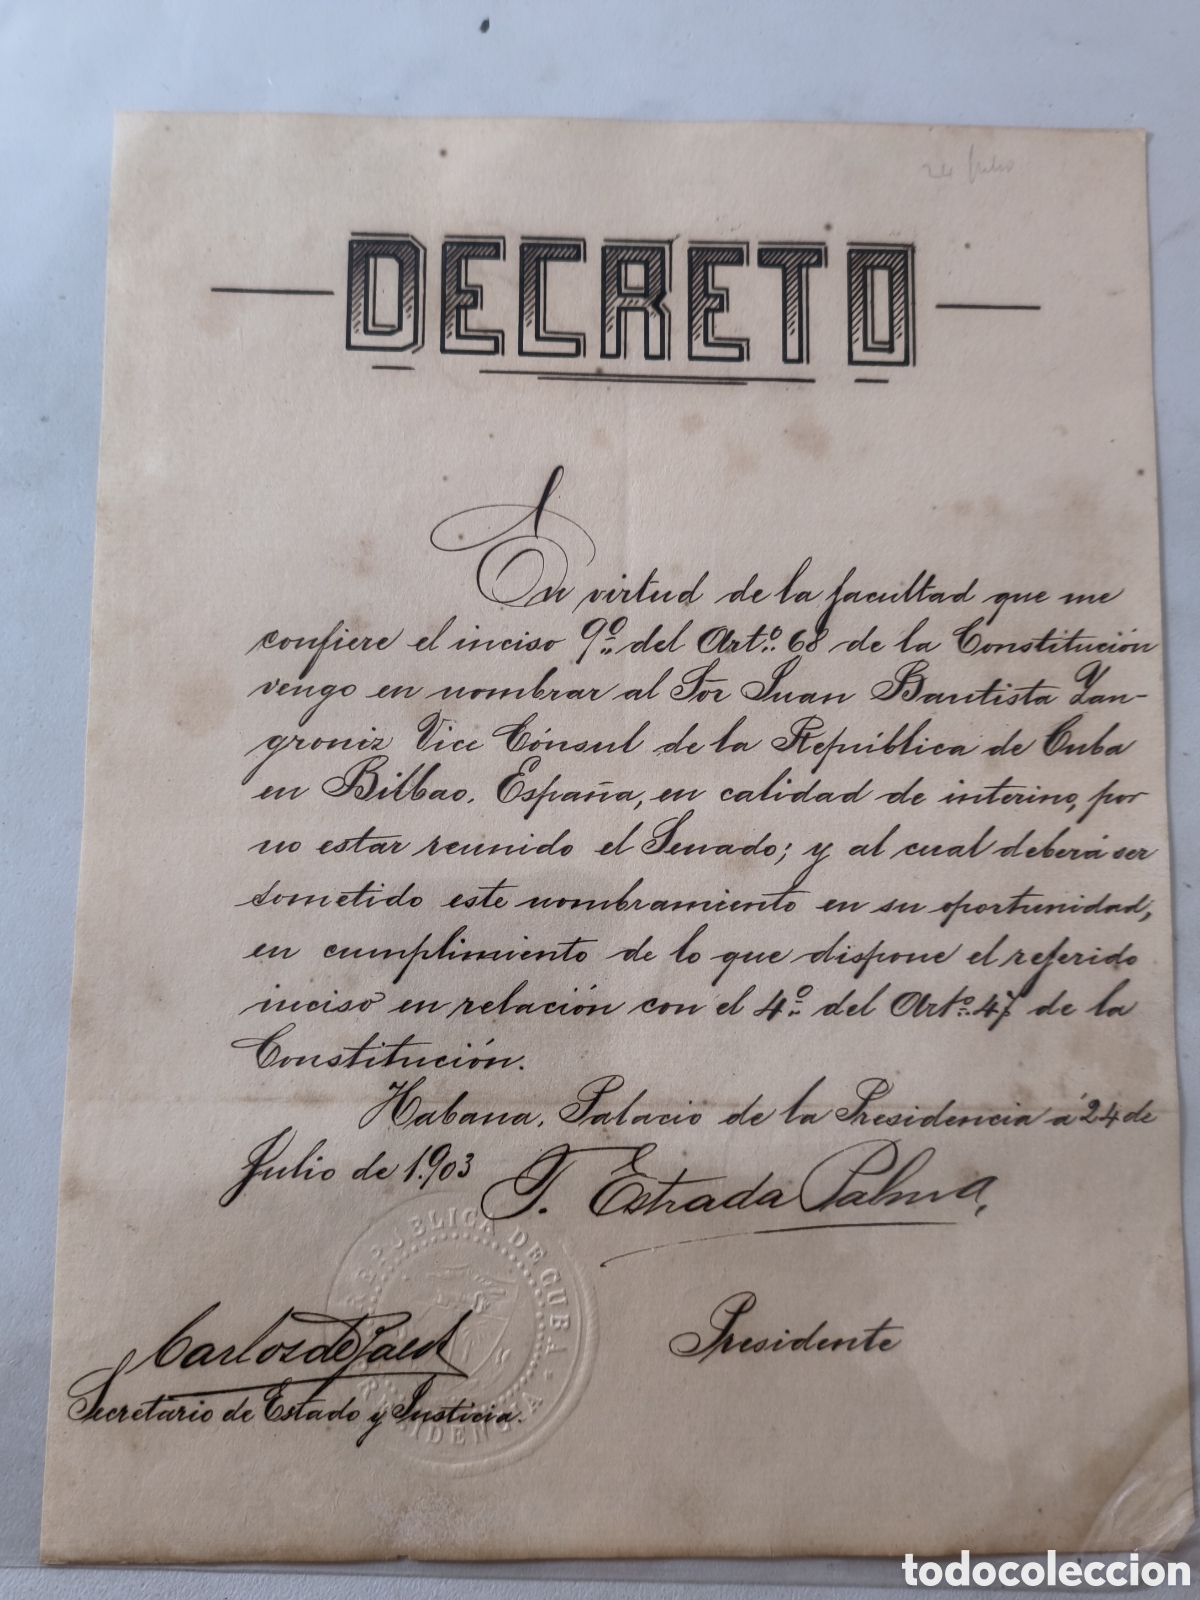 24 Julio
DECRETO
En virtud de la facultad que me
confiere el inciso 9º del Artº. 68 de la Constitución
vengo en nombrar al Sor Juan Bautista Zan-
groniz Vice Cónsul de la República de Cuba
en Bilbao, España, en calidad de interino, por
no estar reunido el Senado; y al cual deberá ser
sometido este nombramiento en su oportunidad,
en cumplimiento de lo que dispone el referido
inciso en relación con el 4º del Artº. 47 de la
Constitución.
Habana, Palacio de la Presidencia á 24 de
Julio de 1.903
T. Estrada Palma,
REPUBLICA DE CUBA
PRESIDENCIA
Presidente
Carlos de Zaldo
Secretario de Estado y Justicia.
todocoleccion